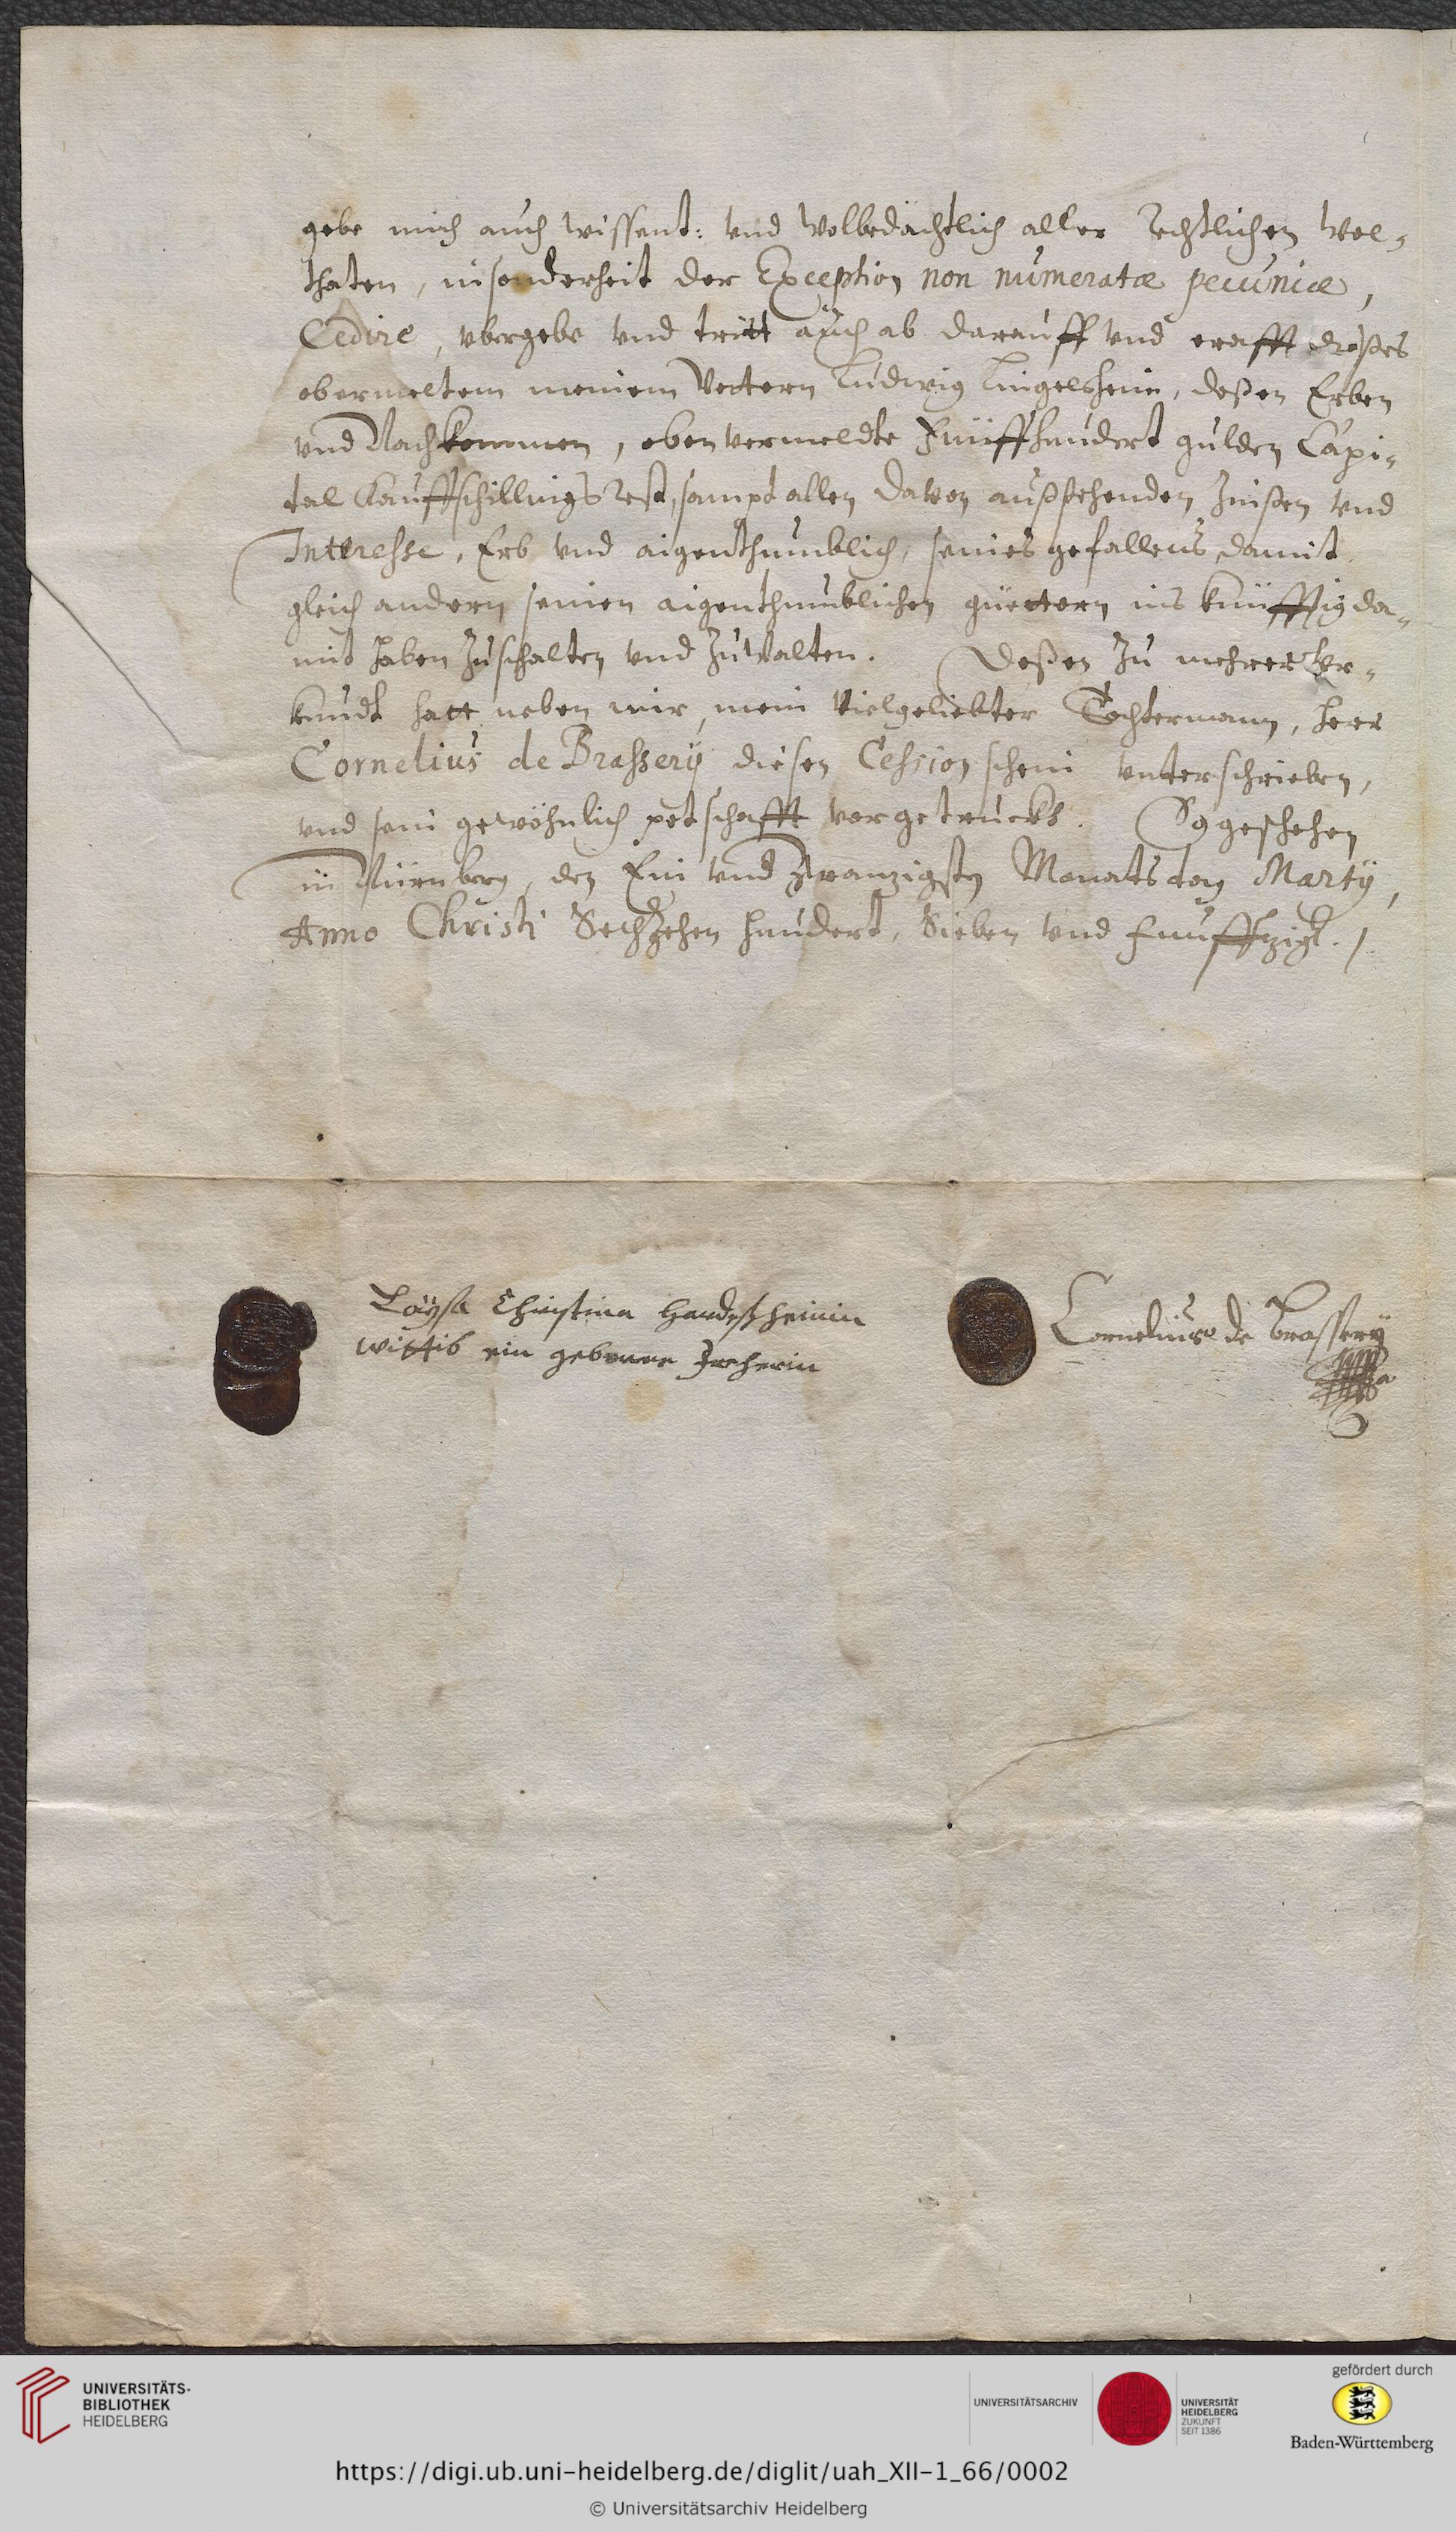 gebe mich auch wissent: vnd wolbedächtlich aller Rechtlichen wol-
thaten, insonderheit der Exception non numeratæ pecuniæ,
Cedire, vbergebe vnd tritt auch ab darauff vnd crafft dießes
obermeltem meinem Vettern Ludwig Lingelsheim, deßen Erben
vnd Nachkommen, obenvermeldte Fünffhundert gulden Capi-
tal Kauffschillings Rest, sampt allen davon außstehenden Zinßen vnd
Interesse, Erb vnd aigenthumblich, seines gefallens damit
gleich andern seinen aigenthumblichen güettern ins künfftig da-
mit haben zuschalten vnd zuwalten. Deßen zu mehrer Vr-
kundt hatt neben mir, mein Vielgeliebter Tochtermann, Herr
Cornelius de Brassery diesen Cession schein vnterschrieben,
vnd sein gewöhnlich petschafft vorgetruckt. So geschehen
in Nürnberg, den Ein vnd Zwanzigsten Monatstag Martÿ,
Anno Christi Sechzehen hundert, Sieben vnd Fünffzigk.
Loysa Christina
wittib ein geborne
Cornelius de Brassery
UNIVERSITÄTS-
BIBLIOTHEK
HEIDELBERG
UNIVERSITÄTSARCHIV
UNIVERSITÄT
HEIDELBERG
ZUKUNFT
SEIT 1386
gefördert durch
Baden-Württemberg
https://digi.ub.uni-heidelberg.de/diglit/uah_XII-1_66/0002
© Universitätsarchiv Heidelberg